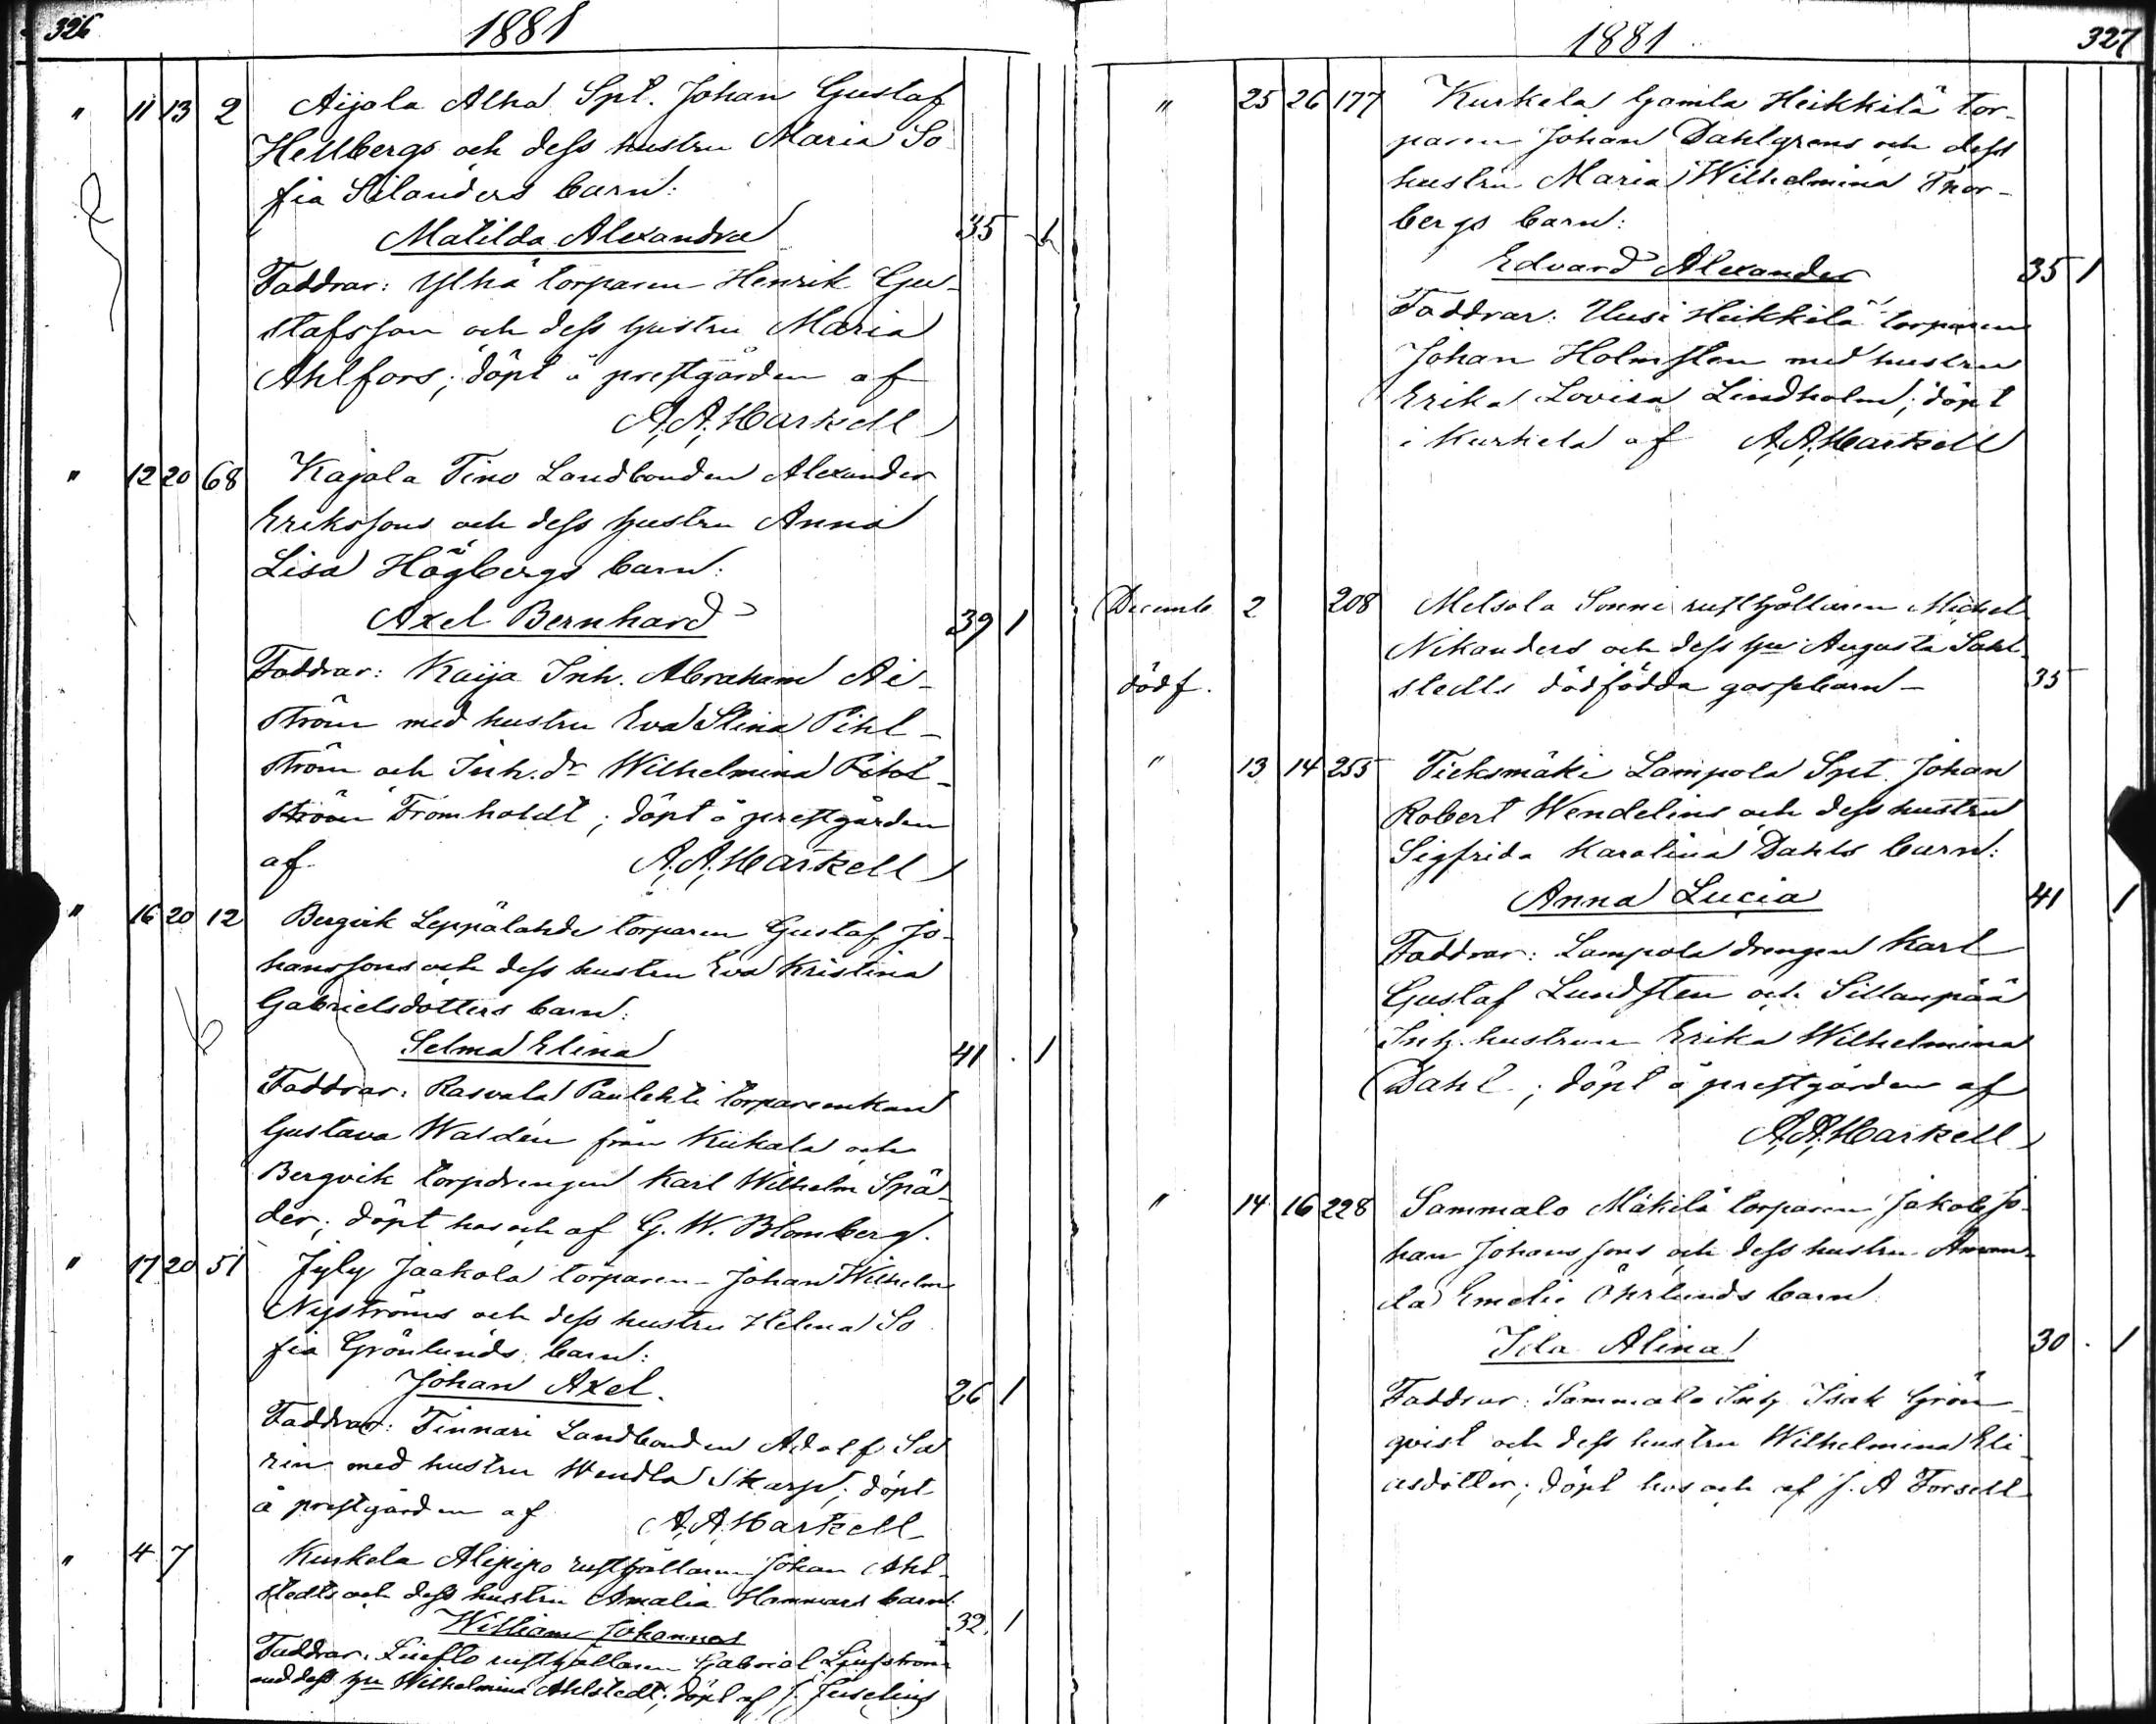 326
1881
" 11 13 2 Aijola Alha Spt. Johan Gustaf
Hellbergs och dess hustru Maria So
fia Silanders barn:
Matilda Alexandra 35 1
Faddrar: Ylhä torparen Henrik Gu-
stafsson och dess hustru Maria
Ahlfors; döpt å prestgården af
A. A. Harkell
" 12 20 68 Kajala Tino Landbonden Alexander
Erikssons och dess hustru Anna
Lisa Högbergs barn:
Axel Bernhard 39 1
Faddrar: Kaija Inh. Abraham Ai-
ström med hustru Eva Stina Pihl-
ström och Inh. dr Wilhelmina
Fromholdt; döpt å prestgården
af A. A. Harkell
" 16 20 12 Bergvik Leppälahde torparen Gustaf Jo-
hanssons och dess hustru Eva Kristina
Gabrielsdotters barn:
Selma Elina 41 . 1
Faddrar: Rasvala torparenkan
Gustava Waldén från Kiikala och
Bergvik torpdrengen Karl Wilhelm Spä-
der; döpt hos och af G. W. Blomberg.
" 17 20 51 Jyly Jaakola torparen Johan Wilhelm
Nyströms och dess hustru Helena So
fia Grönlunds barn:
Johan Axel. 26 1
Faddrar: Tinnari Landbonden Adolf Sa
rin med hustru Wendla Skarp; döpt
å prestgården af A. A. Harkell
" 4 7 Kurkela Alipipo rusthållaren Johan Ahl-
stedts och dess hustru Amalia Hammars barn:
William Johannes 32. 1
Faddrar: rusthållaren Gabriel
med dess hu Wilhelmina Ahlstedt; döpt af J. Juselius
1881
327
" 25 26 177 Kurkela Gamla Heikkilä tor-
paren Johan Dahlgrens och dess
hustru Maria Wilhelmina Thor-
bergs barn:
Edvard Alexander 35 1
Faddrar: Uusi Heikkilä torparen
Johan Holmsten med hustru
Erika Lovisa Lindholm; döpt
i Kurkela af A. A. Harkell
Decemb. 2 208 Melsola Sonni rusthållaren Michel
Nikanders och dess hu Augusta Sahl-
dödf. stedts dödfödda gossebarn - 35
" 13 14 255 Tieksmäki Lampola Spt. Johan
Robert Wendelins och dess hustru
Sigfrida Karolina Dahls barn:
Anna Lucia 41 1
Faddrar: Lampola drengen Karl
Gustaf Lundsten och Sillanpää
Inh. hustrun Erika Wilhelmina
Dahl; döpt å prestgården af
A. A. Harkell
" 14 16 228 Sammalo Mäkilä torparen Jakob Jo-
han Johanssons och dess hustru Aman-
da Emelie Öhrlunds barn
Ida Alina 30 . 1
Faddrar: Sammalo Inh. Isak Grön-
qvist och dess hustru Wilhelmina Eli-
asdotter; döpt hos och af J. A Forsell